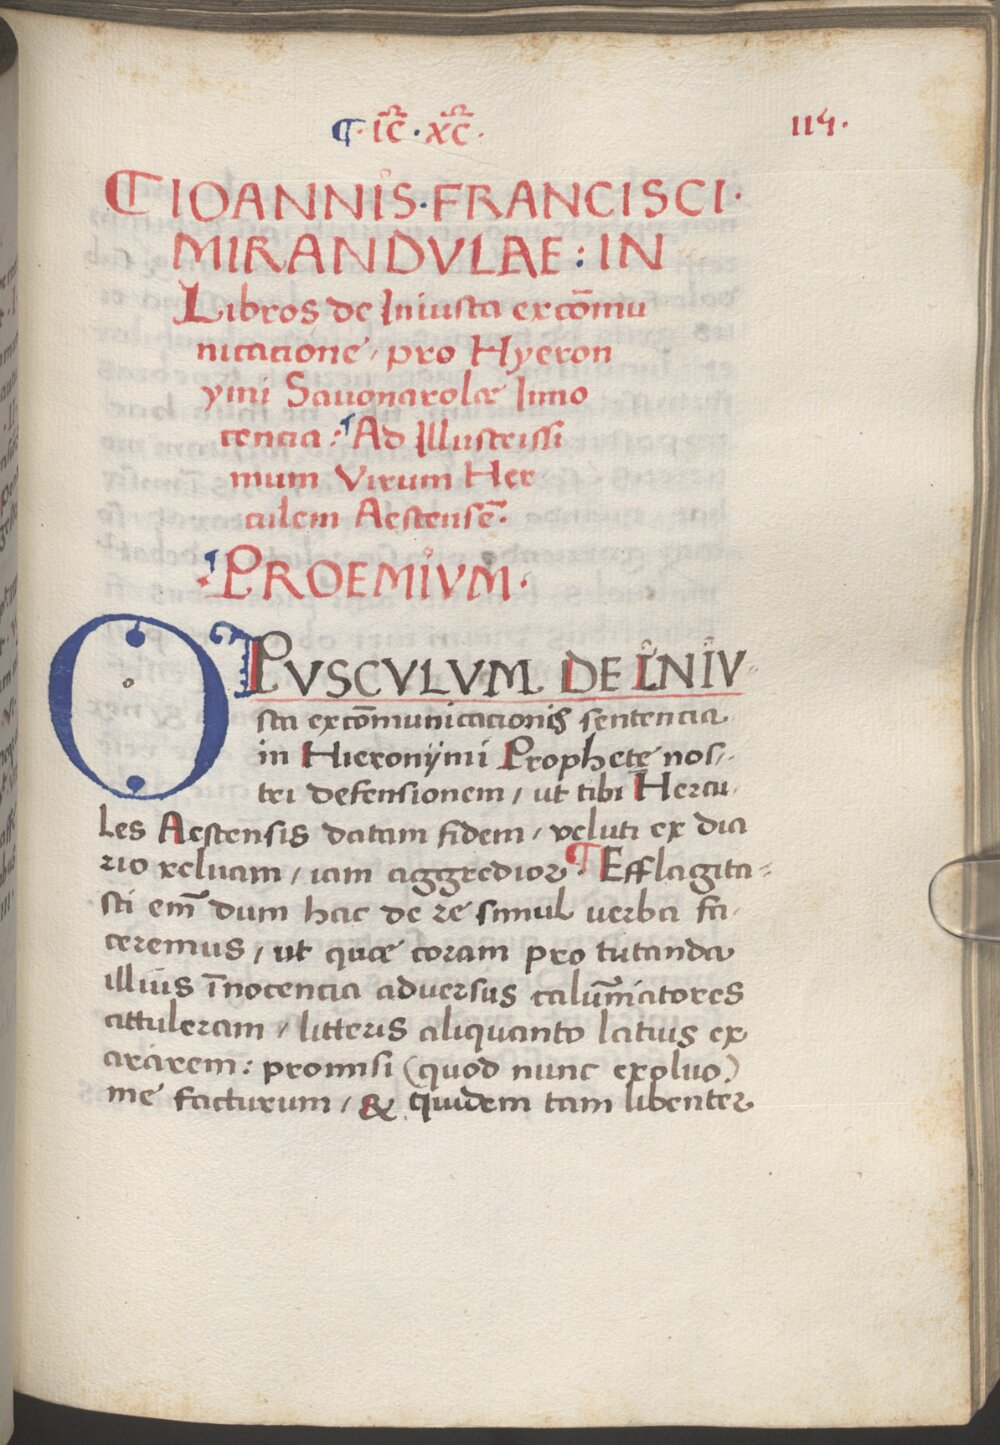 ¶·IC̄·XC̄·
114·
¶IOANNIS·FRANCISCI·
MIRANDVLAE: IN
Libros de Iniusta excōmu
nicatione, pro Hyeron
ymi Sauonarolæ Inno
centia: ¶Ad Illustrissi
mum Virum Her
culem Aestensē·
¶PROEMIVM·
OPVSCVLVM DE INIV-
sta excōmunicationis sententia
in Hieronymi Prophetę nos-
tri defensionem, ut tibi Hercu-
les Aestensis datam fidem, veluti ex dia
rio reluam, iam aggredior. ¶Efflagita-
sti em̄ dum hac de re simul uerba fa-
ceremus, ut quæ coram pro tutanda
illius īnocentia adversus calūniatores
attuleram, litteris aliquanto latius ex
ararem: promisi (quod nunc exoluo)
me facturum, & quidem tam libenter